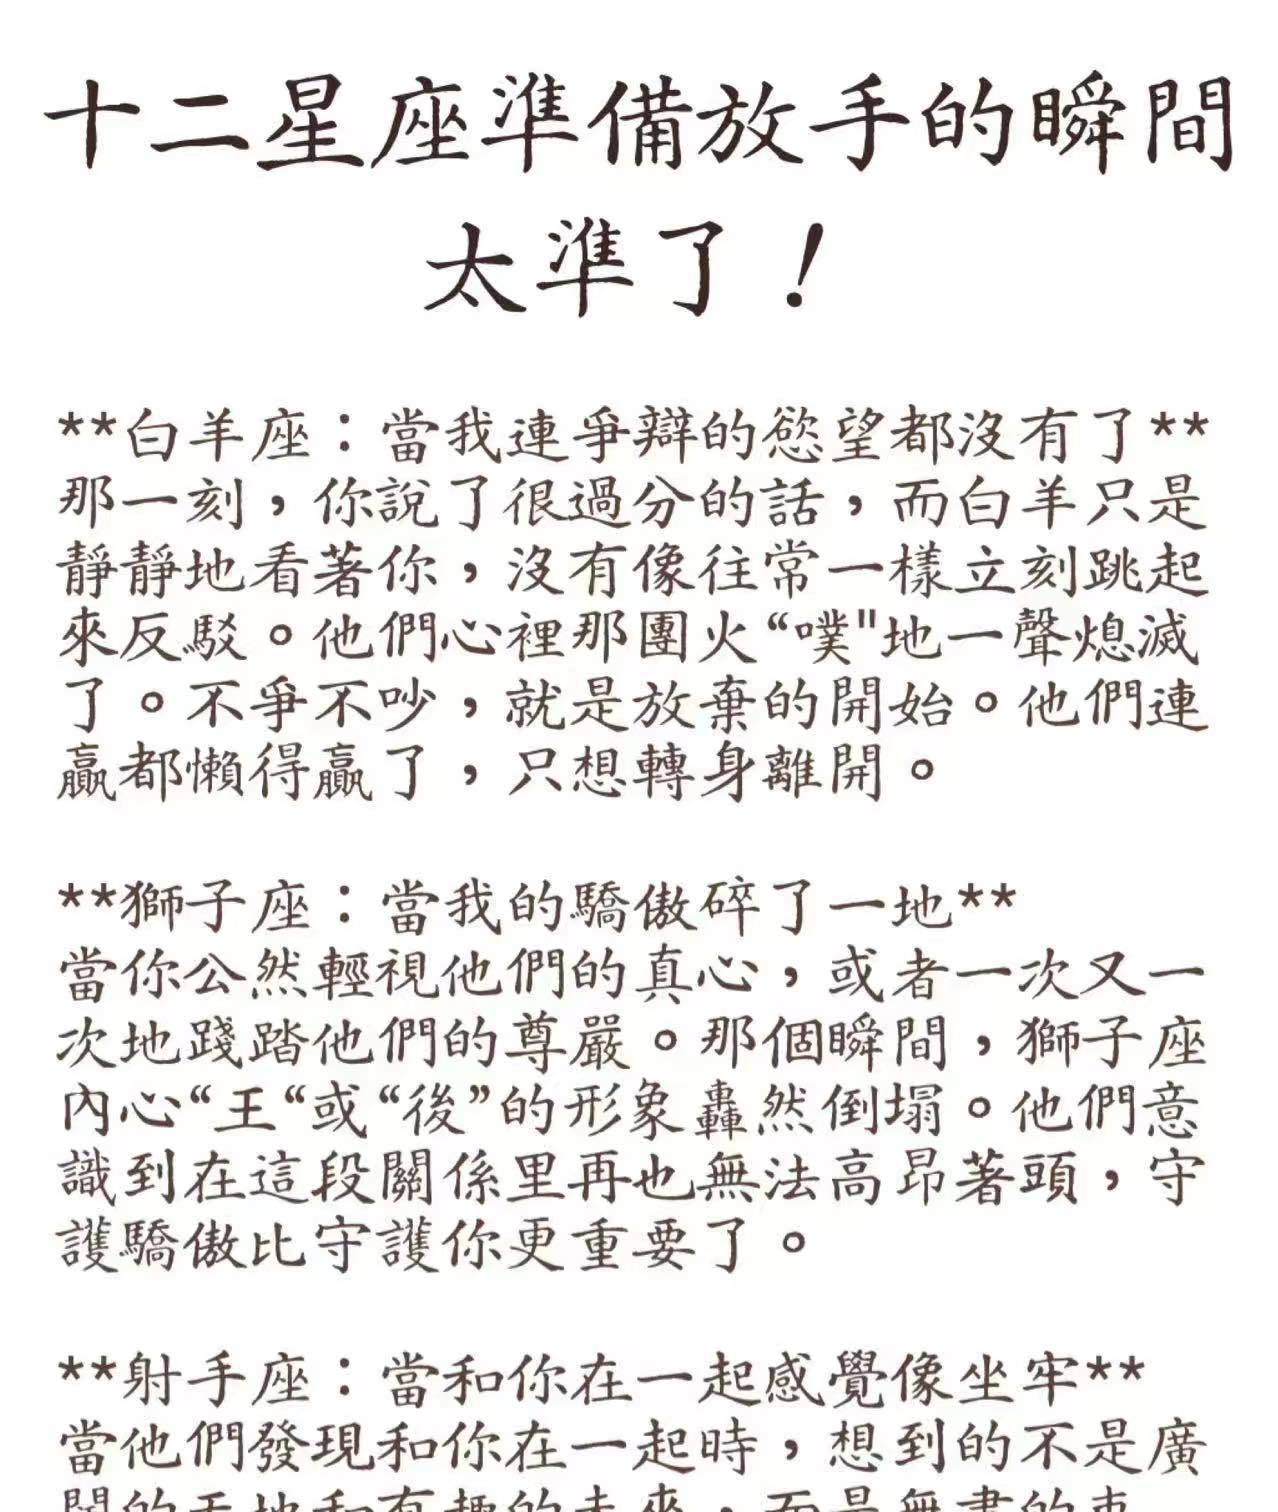 十二星座準備放手的瞬間
太準了！
**白羊座：當我連爭辯的慾望都沒有了**
那一刻，你說了很過分的話，而白羊只是
靜靜地看著你，沒有像往常一樣立刻跳起
來反駁。他們心裡那團火“噗"地一聲熄滅
了。不爭不吵，就是放棄的開始。他們連
贏都懶得贏了，只想轉身離開。
**獅子座：當我的驕傲碎了一地**
當你公然輕視他們的真心，或者一次又一
次地踐踏他們的尊嚴。那個瞬間，獅子座
內心“王“或“後”的形象轟然倒塌。他們意
識到在這段關係里再也無法高昂著頭，守
護驕傲比守護你更重要了。
**射手座：當和你在一起感覺像坐牢**
當他們發現和你在一起時，想到的不是廣
闊的天地和有趣的未來，而是無盡的